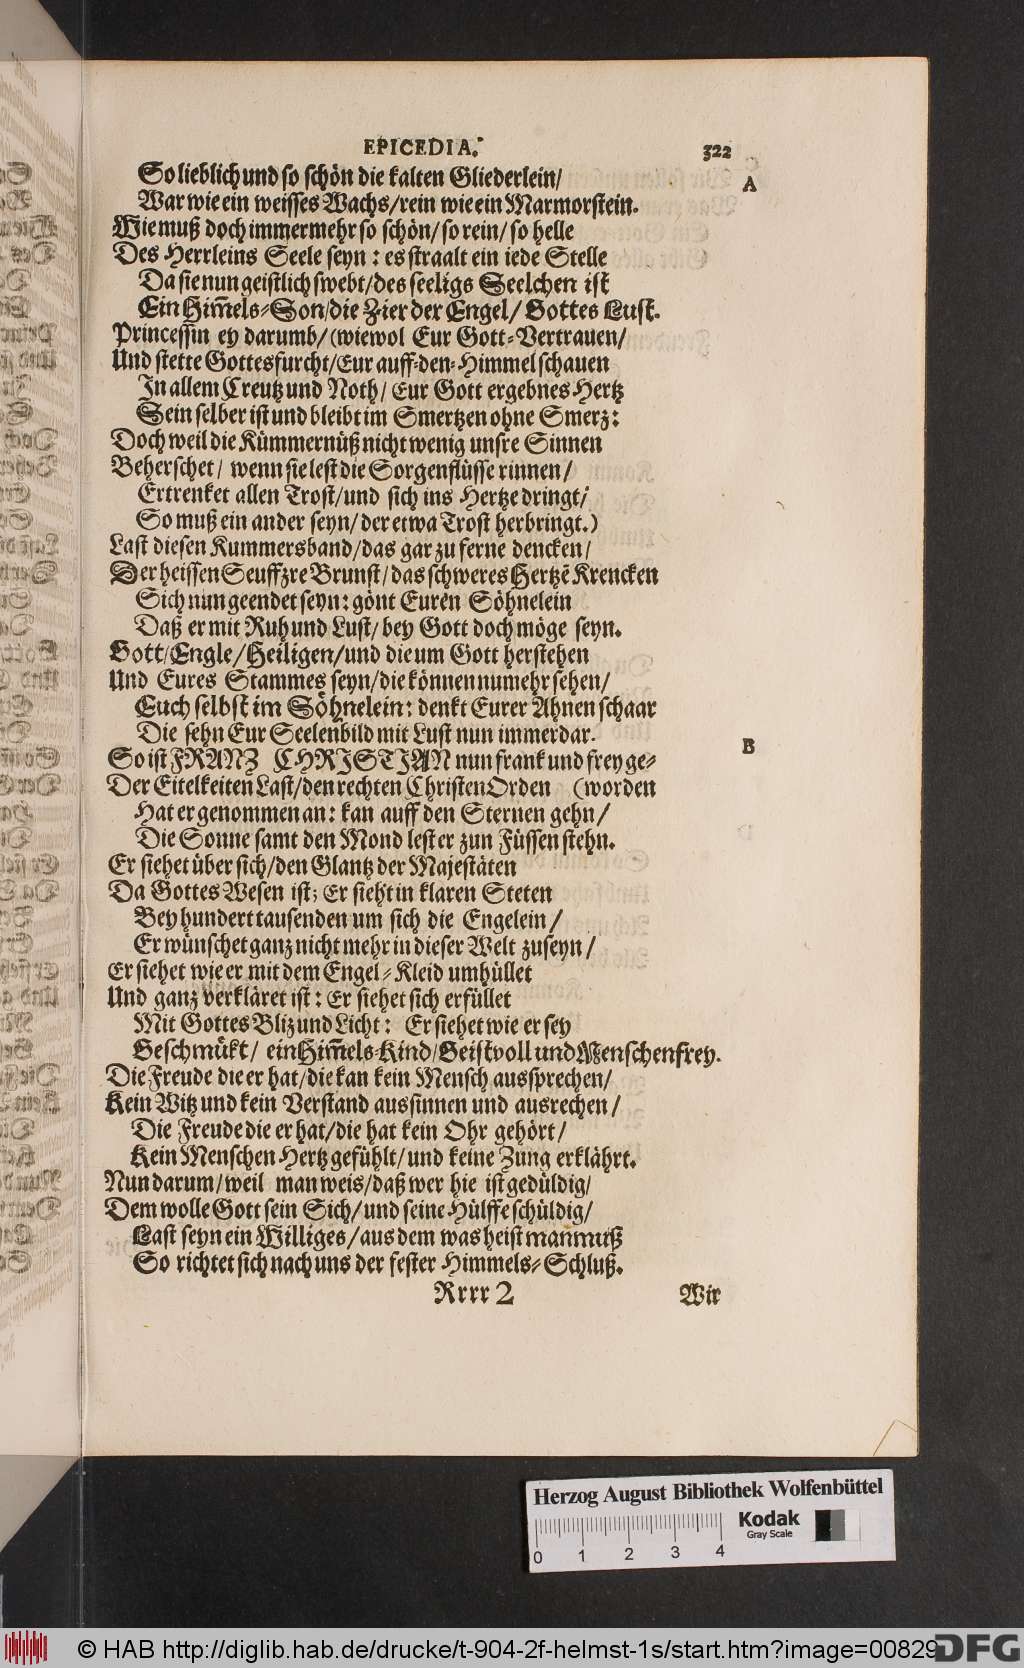 EPICEDIA.
322
So lieblich und so schön die kalten Gliederlein/
A
War wie ein weisses Wachs/rein wie ein Marmorstein.
Wie muß doch immermehr so schön/ so rein/ so helle
Des Herrleins Seele seyn : es straalt ein iede Stelle
Da sie nun geistlich swebt/des seeligs Seelchen ist
Ein Him̃els-Son/die Zier der Engel/ Gottes Lust.
Princessin ey darumb/ (wiewol Eur Gott-Vertrauen/
Und stette Gottesfurcht/Eur auff-den-Himmel schauen
In allem Creutz und Noth/ Eur Gott ergebnes Hertz
Sein selber ist und bleibt im Smertzen ohne Smerz:
Doch weil die Kümmernüß nicht wenig unsre Sinnen
Beherschet/ wenn sie lest die Sorgenflüsse rinnen/
Ertrenket allen Trost/und sich ins Hertze dringt/
So muß ein ander seyn/ der etwa Trost herbringt.)
Last diesen Kummersband/das gar zu ferne dencken/
Der heissen Seuffzre Brunst/das schweres Hertzẽ Krencken
Sich nun geendet seyn: gönt Euren Söhnelein
Daß er mit Ruh und Lust/ bey Gott doch möge seyn.
Gott/Engle/Heiligen/und die um Gott herstehen
Und Eures Stammes seyn/die können numehr sehen/
Euch selbst im Söhnelein: denkt Eurer Ahnen schaar
Die sehn Eur Seelenbild mit Lust nun immerdar.
B
So ist FRANZ CHRISTIAN nun frank und frey ge-
Der Eitelkeiten Last/den rechten Christen Orden (worden
Hat er genommen an: kan auff den Sternen gehn/
Die Sonne samt den Mond lest er zun Füssen stehn.
Er siehet über sich/den Glantz der Majestäten
Da Gottes Wesen ist; Er sieht in klaren Steten
Bey hundert tausenden um sich die Engelein/
Er wünschet ganz nicht mehr in dieser Welt zuseyn/
Er siehet wie er mit dem Engel-Kleid umhüllet
Und ganz verkläret ist : Er siehet sich erfüllet
Mit Gottes Bliz und Licht: Er siehet wie er sey
Geschmükt/ ein Him̃els-Kind/Geistvoll und Menschenfrey.
Die Freude die er hat/die kan kein Mensch aussprechen/
Kein Witz und kein Verstand aussinnen und ausrechen/
Die Freude die er hat/die hat kein Ohr gehört/
Kein Menschen Hertz gefühlt/und keine Zung erklährt.
Nun darum/weil man weis/daß wer hie ist gedüldig/
Dem wolle Gott sein Sich/und seine Hülffe schüldig/
Last seyn ein Williges/aus dem was heist man muß
So richtet sich nach uns der fester Himmels-Schluß.
Rrrr 2
Wir
Herzog August Bibliothek Wolfenbüttel
Kodak
Gray Scale
0 1 2 3 4
© HAB http://diglib.hab.de/drucke/t-904-2f-helmst-1s/start.htm?image=00829
DFG